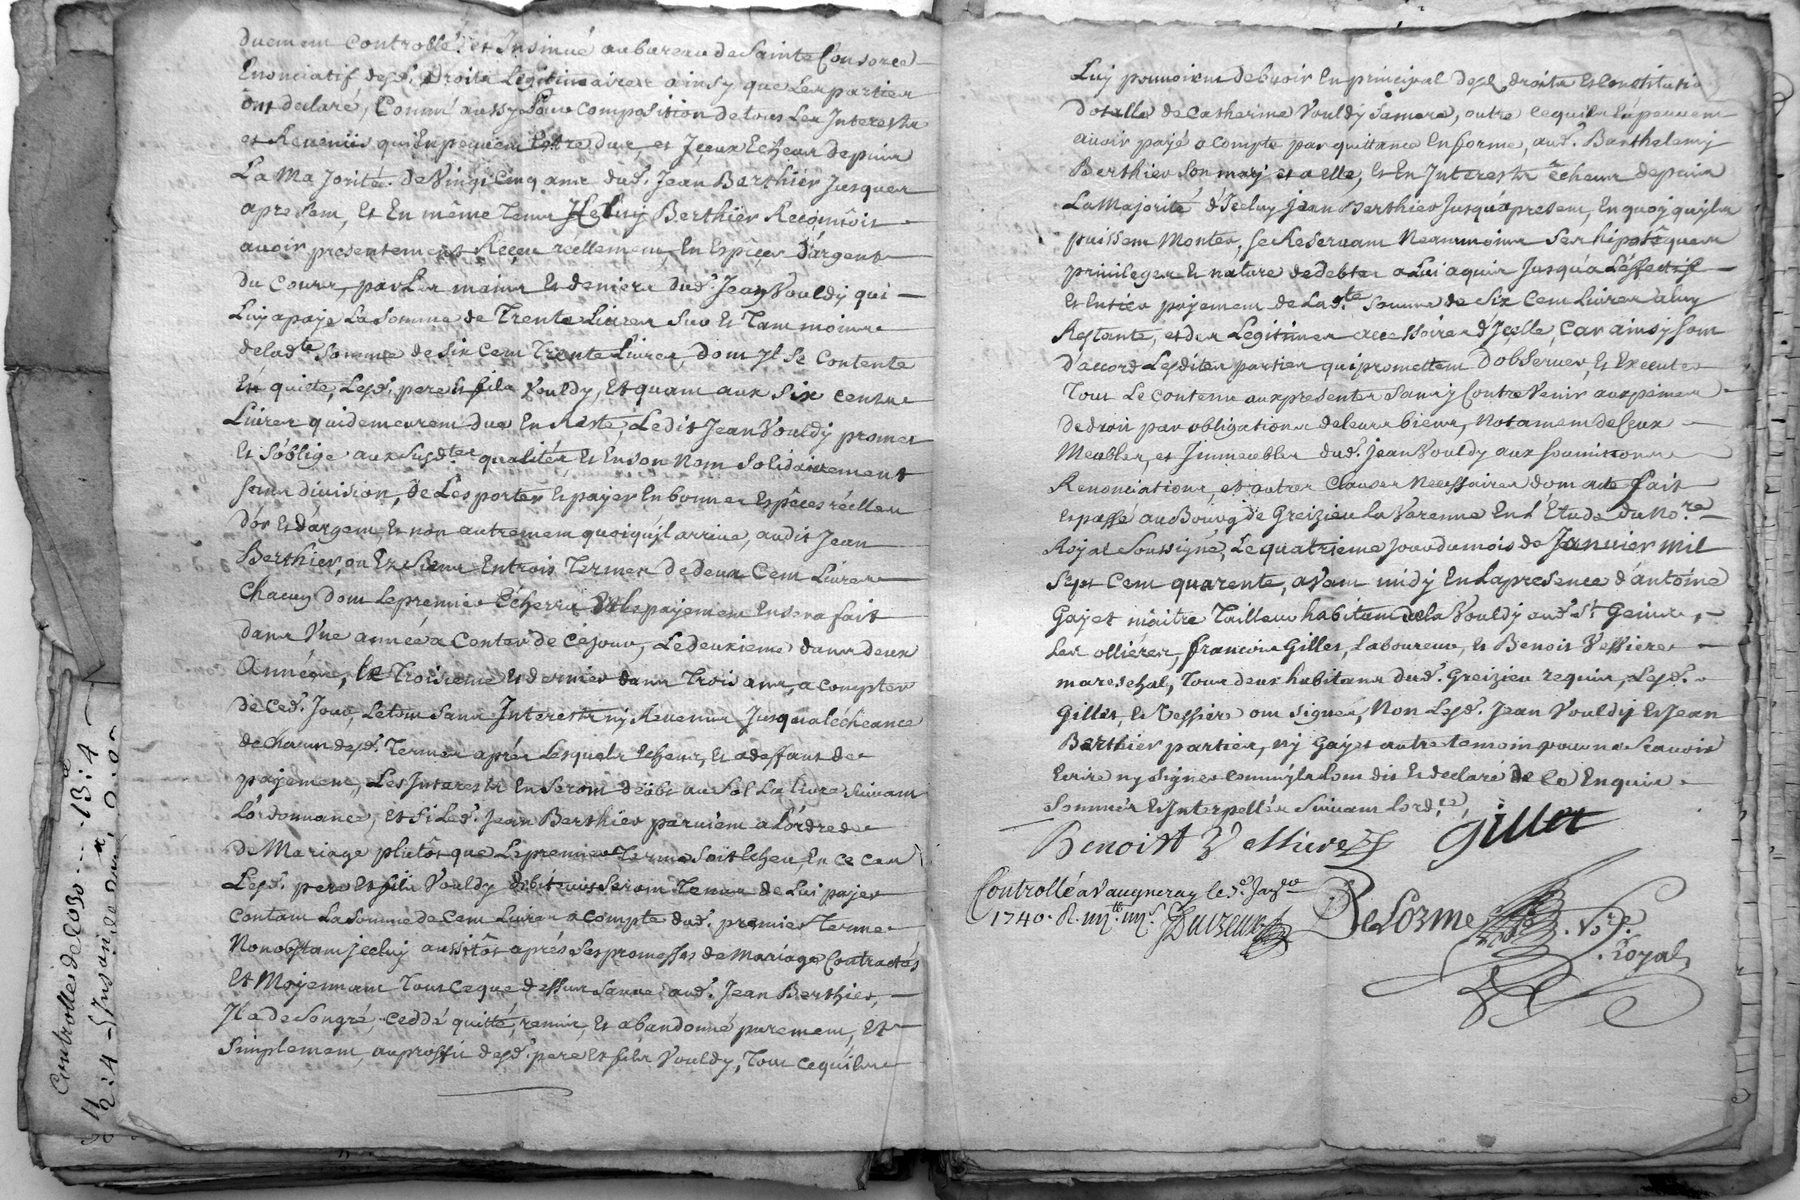 duement Controllé et Insinué au bureau de Sainte Consorce
Enonciatif desd. Droits Légitimaires ainsy que les parties
ont declaré, Comme aussy Sauf composition de tous Les Interests
et Revenüs qui En peuvent Estre dus, et Iceux Echeus depuis
La Majorité de Vingt cinq ans dud. Jean Berthier Jusques
apresent, Et En même Tems Icelluy Berthier Reconnoit
avoir presentement Reçeu réellement En Espèces d'argent
du Cours, par Les mains Et deniers dud. Jean Vouldy qui
Luy a payé La Somme de Trente Livres Sur Et Tant moins
de lad.te Somme de Six Cent Trente Livres dont Il Se Contente
En quitte, Lesd. pere Et fils Vouldy, Et quant aux Six cents
Livres qui demeurent Dues En Reste, Ledit Jean Vouldy promet
Et S'oblige aux Susd.tes qualités, Et En son Nom Solidairement
sans division, de Les porter Et payer En bonnes Espèces réelles
d'or Et d'argent Et non autrement quoiqu'il arrive, audit Jean
Berthier, ou Es Siens En trois Termes De deux Cent Livres
Chacun dont Le premier Echerra Et le payement En sera fait
dans Une année a Conter de Ce Jour, Le deuxieme dans deux
Années, Le Troisieme Et dernier dans Trois ans, a compter
de Ced. Jour, Le tout Sans Interests ny Revenus Jusqu'a l'échéance
de chacun desd. Termes après Lesquels Echeus, Et a deffaut de
payement, Les Interests En Seront dëübs au Sol La livre Suivant
L'ordonnance, Et Si Led. Jean Berthier parvient a L'ordre de
Mariage plutôt que Le premier Terme Soit Echeu, En ce cas
Lesd. pere Et fils Vouldy debiteurs Seront Tenus de Lui payer
Contant La Somme de Cent Livres a Compte dud. premier Terme
Nonobstant jceluy aussitôt après Ses promesses de Mariage Contractés
Et Moyennant Tout Ceque dessus Sauve aud. Jean Berthier,
Il a de Son gré, Ceddé quitté, remis, Et abandonné purement, Et
Simplement, au proffit desd. pere Et fils Vouldy, Tout Cequ'ils
Luy pouvoient debvoir En principal desd. droits Et Constitution
Dotalle de Catherine Vouldy Sa mere, outre Ce qu'ils En peuvent
avoir payé a compte par quittance En forme, aud. Barthelemy
Berthier Son mary et a elle, Et En Interests Echeus depuis
La Majorité d'Iceluy Jean Berthier Jusqu'a present, En quoy qu'ils
puissent Monter, Se Reservant Neanmoins Ses hipotêques
privileges Et nature de debte a Lui aquis Jusqu'a L'éffectif
Et Entier payement de Lad.te Somme de Six Cent Livres a Luy
Restante, et des Legitimes accessoires d'Icelle, Car ainsy Sont
D'accord Lesdites parties qui promettent D'observer, Et Executer
Tout Le Contenu aux presentes Sans y Contrevenir aux peines
De droit par obligations de leurs biens, Notament de Ceux
Meubles, et Immeubles dud. Jean Vouldy aux Soumissions
Renonciations, et autres Clauses Necessaires dont acte fait
Et passé au Bourg de Greizieu La Varenne En L'Etude du No.re
Royal Soussigné, Le quatrieme Jour du mois de Janvier Mil
Sept Cent quarente, avant midy En La presence d'antoine
Gayet maitre Tailleur habitant de la Vouldy aud. St Genis,
Les ollières, francois Gillet, Laboureur, Et Benoit Vessieres
mareschal, Tous deux habitans dud. Greizieu requis, Lesd.
Gillet, Et Vessiere ont Signés, Non Lesd. Jean Vouldy Et Jean
Berthier parties, ny Gayet autre temoin pour ne Scavoir
Ecrire ny Signer comm'yls L'ont dit Et declaré de Ce Enquis
Sommés Et Interpellés Suivant L'ord.ce
Benoist Vessiere
Gillet
Controllé a Vaugneray le 5e. Janer
1740.
DeLorme N.re
Royal
Controlles de 630 13: 4